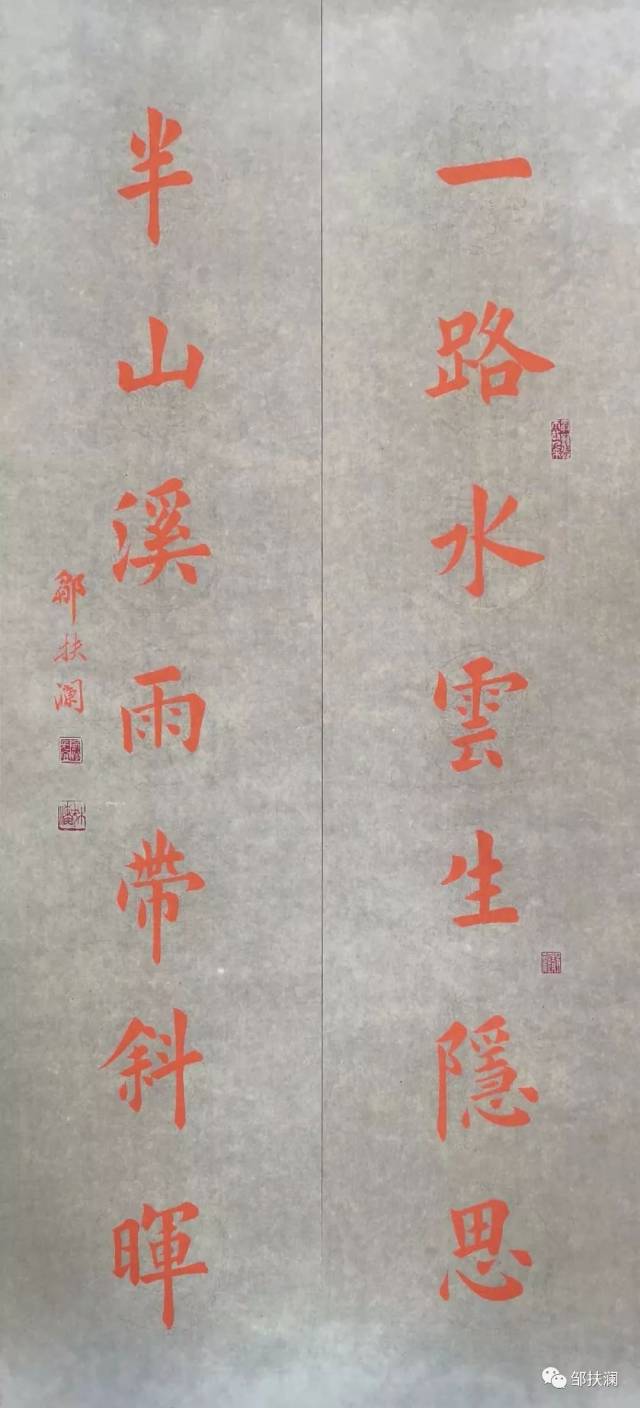 一路水雲生隱思
半山溪雨帶斜暉
鄒扶澜
邹扶澜